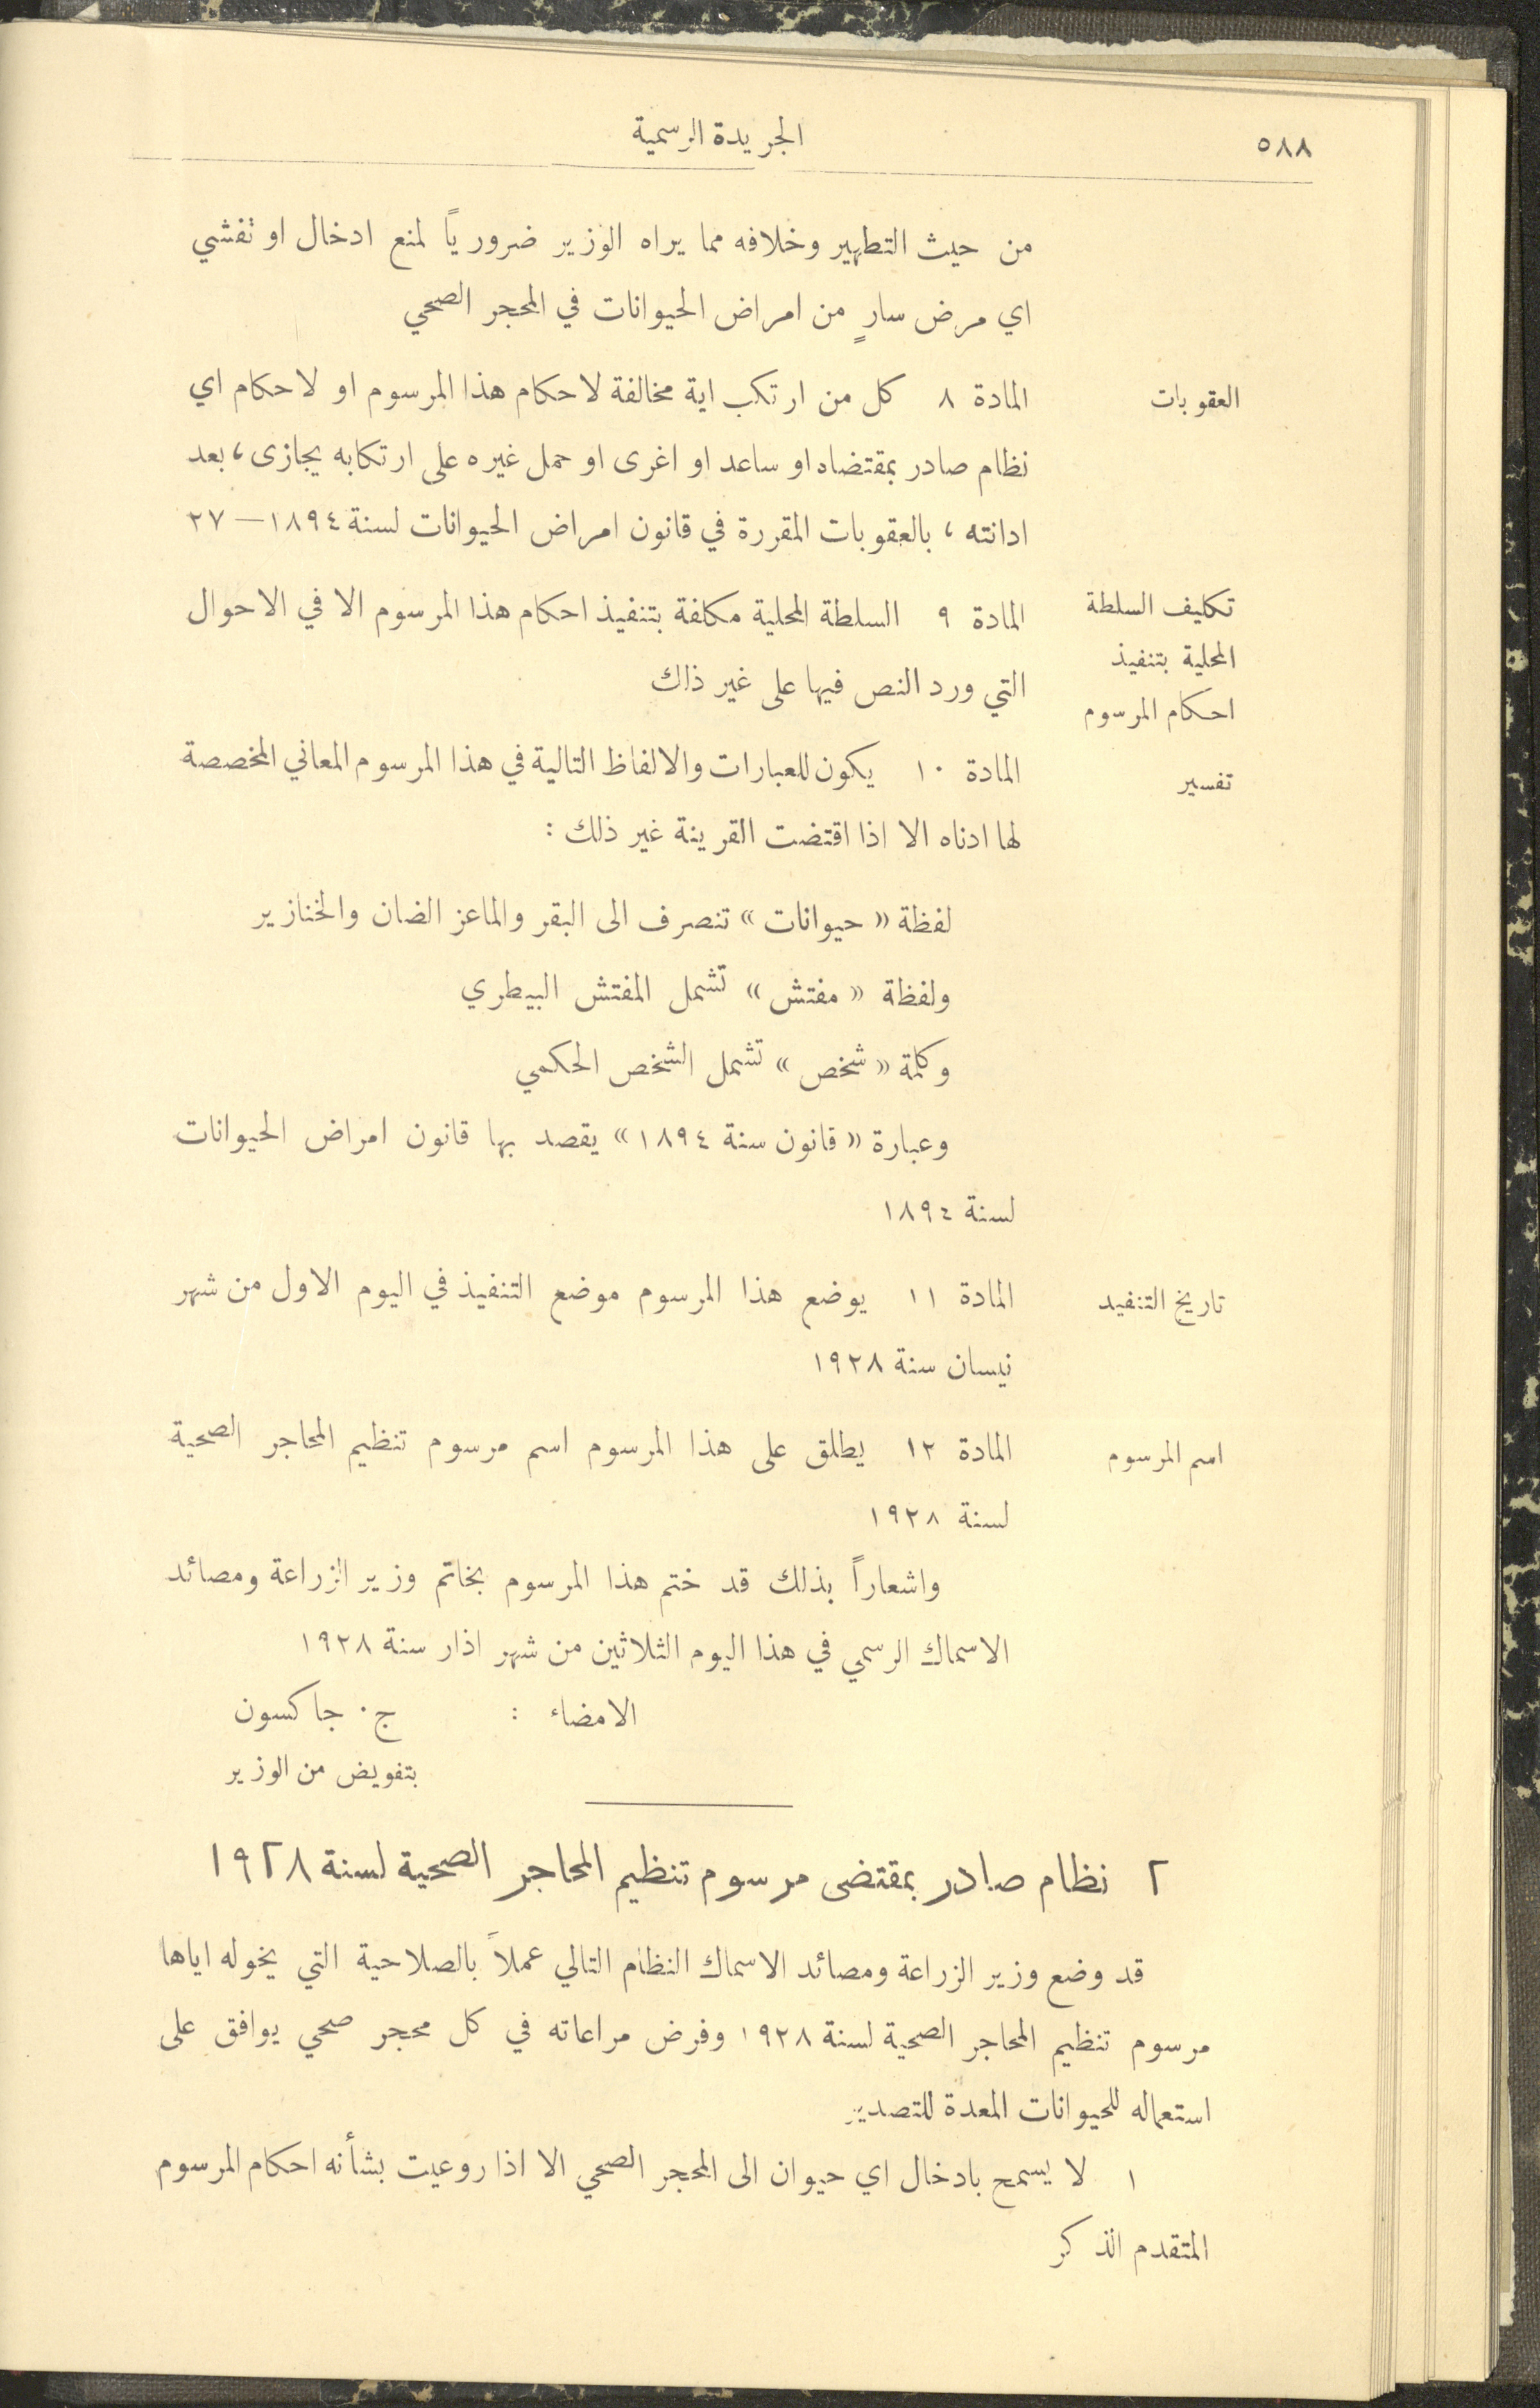 ٥٨٨
الجريدة الرسمية
من حيث التطهير وخلافه مما يراه الوزير ضرورياً لمنع ادخال او تفشي
اي مرض سارٍ من امراض الحيوانات في المحجر الصحي
العقوبات
المادة ٨ كل من ارتكب اية مخالفة لاحكام هذا المرسوم او لاحكام اي
نظام صادر بمقتضاه او ساعد او اغرى او حمل غيره على ارتكابه يجازى، بعد
ادانته، بالعقوبات المقررة في قانون امراض الحيوانات لسنة ١٨٩٤—٢٧
تكليف السلطة
المحلية بتنفيذ
احكام المرسوم
المادة ٩ السلطة المحلية مكلفة بتنفيذ احكام هذا المرسوم الا في الاحوال
التي ورد النص فيها على غير ذاك
تفسير
المادة ١٠ يكون للعبارات والالفاظ التالية في هذا المرسوم المعاني المخصصة
لها ادناه الا اذا اقتضت القرينة غير ذلك :
لفظة « حيوانات » تنصرف الى البقر والماعز الضان والخنازير
ولفظة « مفتش » تشمل المفتش البيطري
وكلمة « شخص » تشمل الشخص الحكمي
وعبارة « قانون سنة ١٨٩٤ » يقصد بها قانون امراض الحيوانات
لسنة ١٨٩٤
تاريخ التنفيد
المادة ١١ يوضع هذا المرسوم موضع التنفيذ في اليوم الاول من شهر
نيسان سنة ١٩٢٨
اسم المرسوم
المادة ١٢ يطلق على هذا المرسوم اسم مرسوم تنظيم المحاجر الصحية
لسنة ١٩٢٨
واشعاراً بذلك قد ختم هذا المرسوم بخاتم وزير الزراعة ومصائد
الاسماك الرسمي في هذا اليوم الثلاثين من شهر اذار سنة ١٩٢٨
الامضاء : ج. جاكسون
بتفويض من الوزير
٢ نظام صادر بمقتضى مرسوم تنظيم المحاجر الصحية لسنة ١٩٢٨
قد وضع وزير الزراعة ومصائد الاسماك النظام التالي عملاً بالصلاحية التي يخوله اياها
مرسوم تنظيم المحاجر الصحية لسنة ١٩٢٨ وفرض مراعاته في كل محجر صحي يوافق على
استعماله للحيوانات المعدة للتصدير
١ لا يسمح بادخال اي حيوان الى المحجر الصحي الا اذا روعيت بشأنه احكام المرسوم
المتقدم الذكر